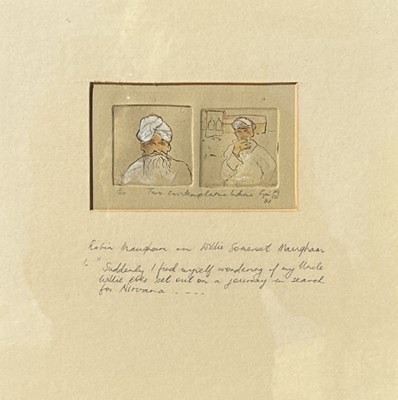 Two contemplative
Robin Maugham on Willie Somerset Maugham
" Suddenly I find myself wondering if my Uncle
Willie set out on a journey in search
for Nirvana . . . .